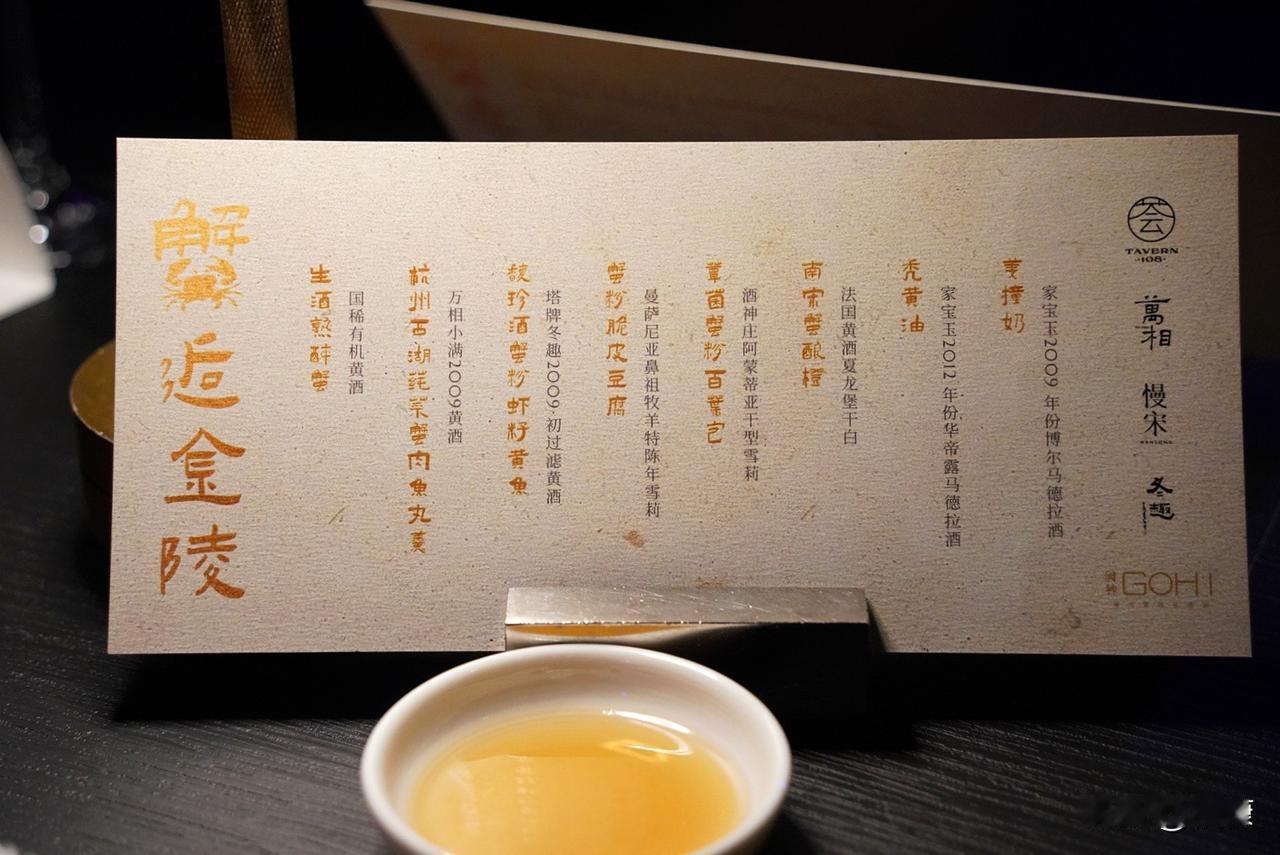 蟹逅金陵
生酒熟醉蟹
国稀有机黄酒
杭州西湖莼菜蟹肉魚丸羹
万相小满2009黄酒
馥珍酒蟹粉虾籽黄魚
塔牌冬趣2009·初过滤黄酒
蟹粉脆皮豆腐
曼萨尼亚鼻祖牧羊特陈年雪莉
蕈菌蟹粉百葉包
酒神庄阿蒙蒂亚干型雪莉
南宋蟹酿橙
法国黄酒夏龙堡干白
秃黄油
家宝玉2012 年份华帝露马德拉酒
姜撞奶
家宝玉2009 年份博尔马德拉酒
荟
TAVERN
·108·
萬相
慢宋
冬趣
GOHI